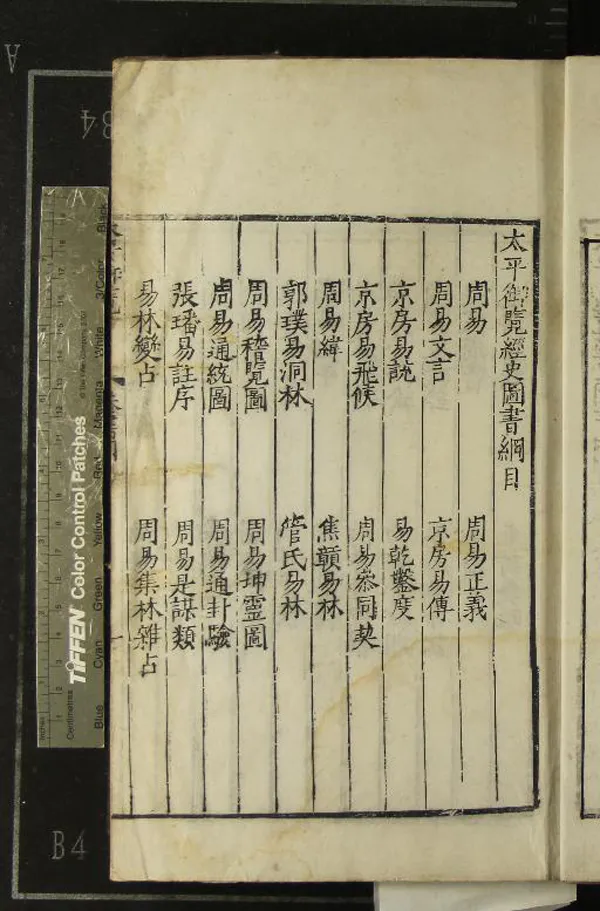 太平御覽經史圖書綱目
周易　周易正義
周易文言　京房易傳
京房易說　易乾鑿度
京房易飛候　周易叅同契
周易緯　焦贛易林
郭璞易洞林　管氏易林
周易稽覽圖　周易坤靈圖
周易通統圖　周易通卦驗
張璠易註序　周易是謀類
易林變占　周易集林雜占
TIFFEN Color Control Patches
Blue Cyan Green Yellow Red Magenta White 3/Color Black
Centimetres
Inches
A
B4
B4